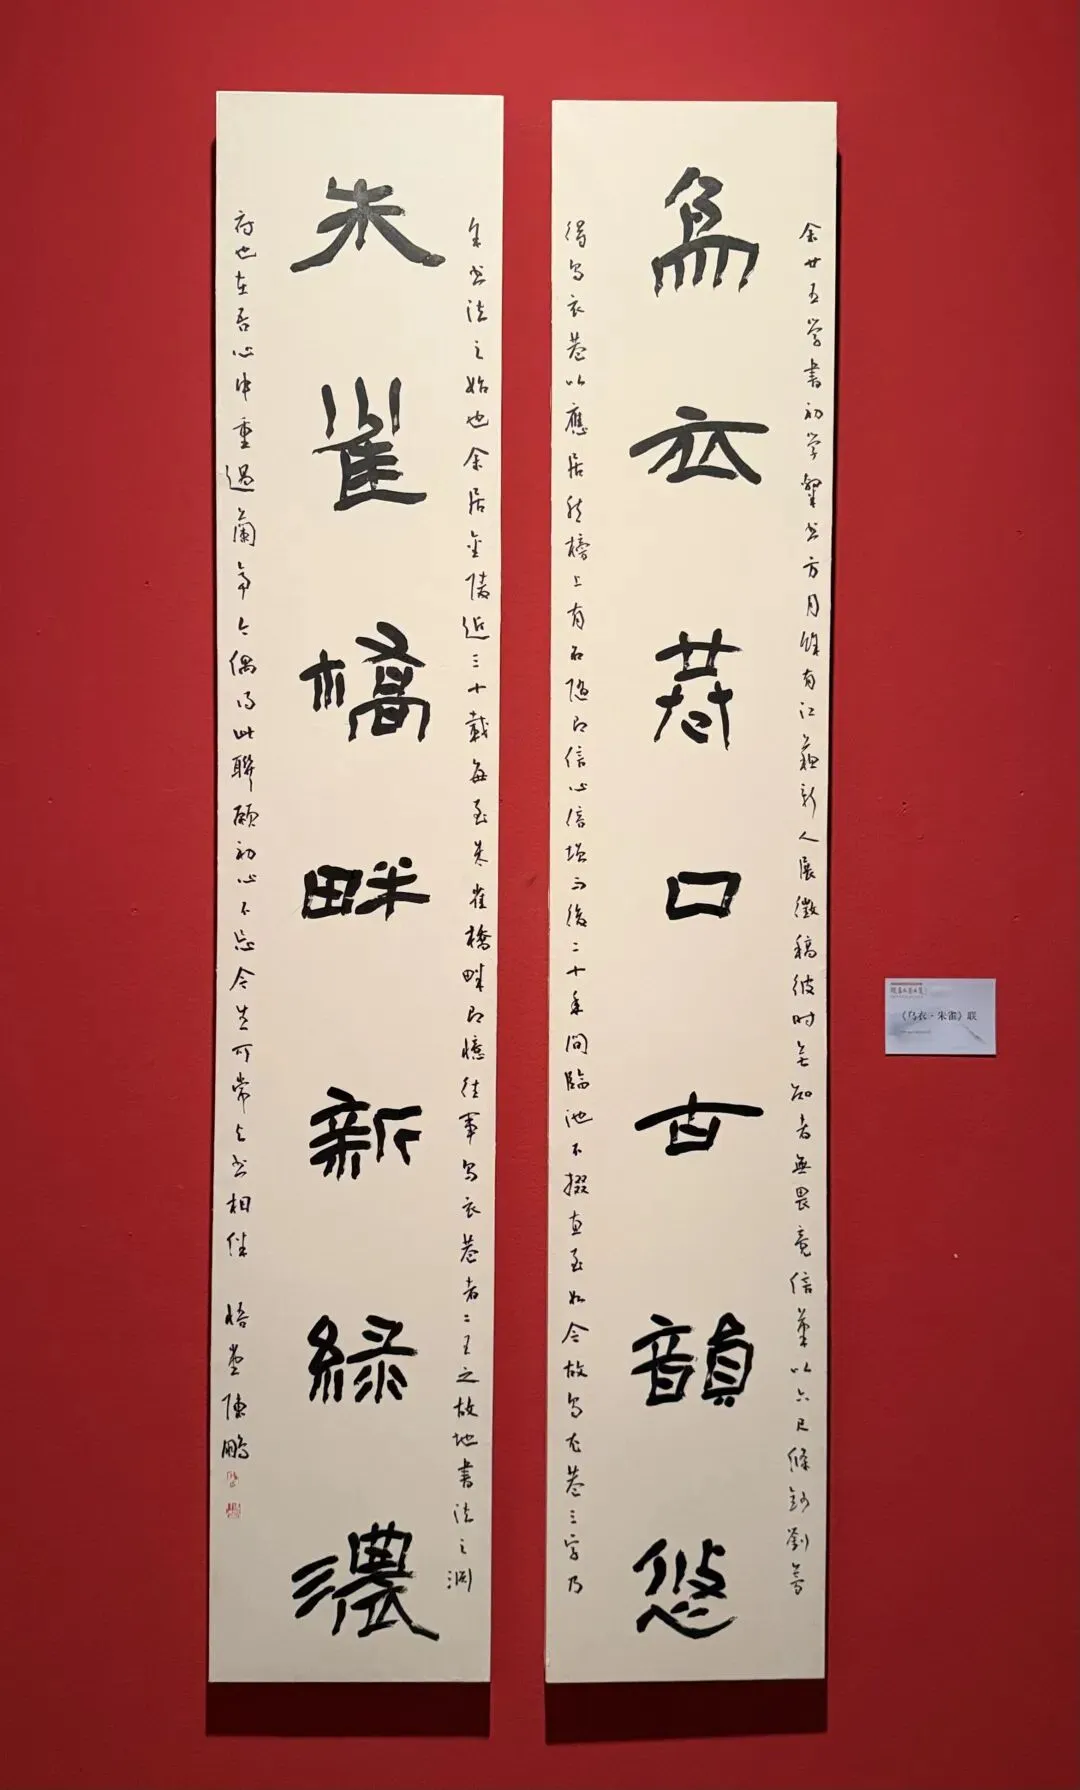 烏衣巷口古韻悠
余廿五學書初學鄴書方月餘有江蘇新人展徵稿彼時無知者無畏竟信筆以六尺條鈔劉夢
得烏衣巷以應居然榜上有名隨即信心倍增而後二十年間臨池不掇直至如今故烏衣巷三字乃
朱雀橋畔新綠濃
余書法之始也余居金陵近三十載每至朱雀橋畔即憶往事烏衣巷者二王之故地書法之淵
府也在吾心中重過蘭亭今偶得此聯願初心不忘今生可常與書相伴 悟堂陳鵬
《乌衣·朱雀》联